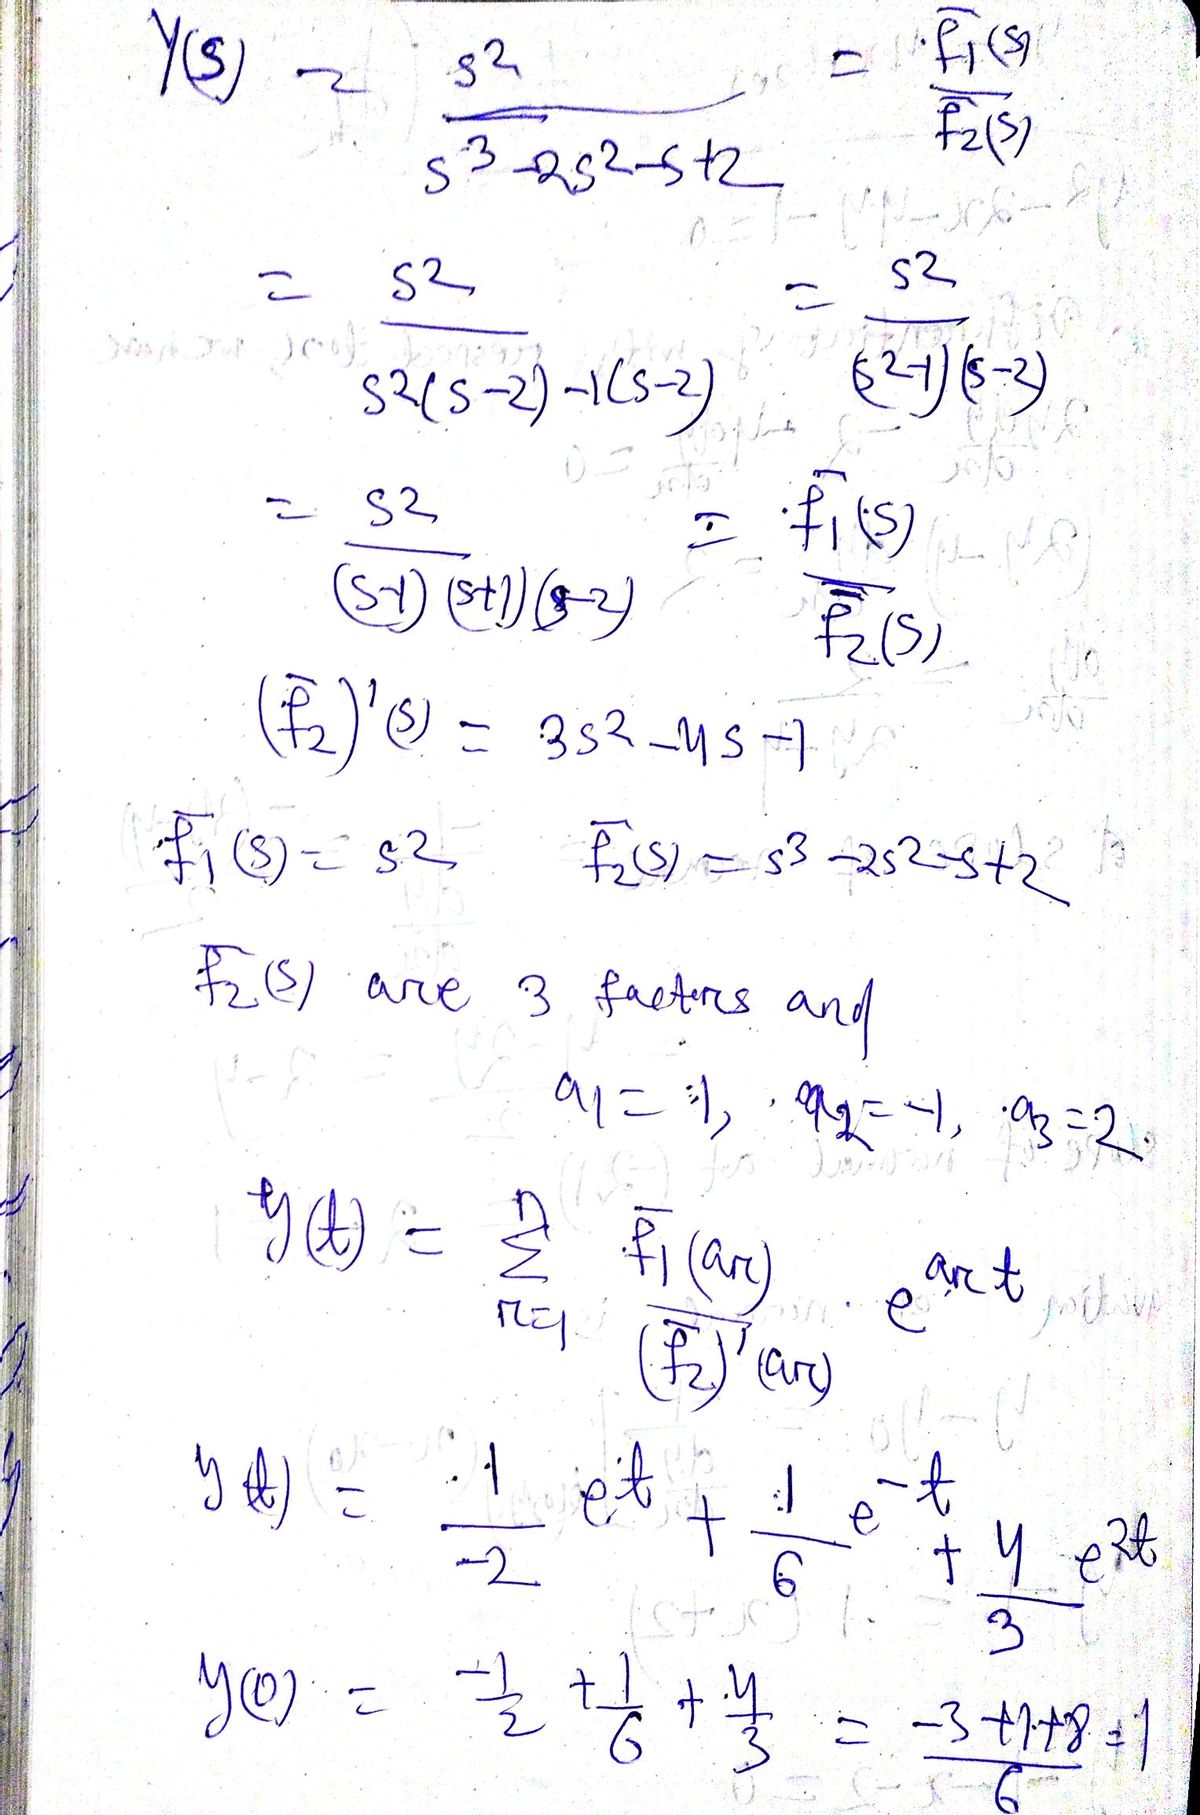 Y(s) = s² / (s³ - 2s² - s + 2) = f̄₁(s) / f̄₂(s)
= s² / (s²(s-2) - 1(s-2)) = s² / ((s²-1)(s-2))
= s² / ((s-1)(s+1)(s-2)) = f̄₁(s) / f̄₂(s)
(f̄₂)'(s) = 3s² - 4s - 1
f̄₁(s) = s² f̄₂(s) = s³ - 2s² - s + 2
f̄₂(s) are 3 factors and
a₁ = 1, a₂ = -1, a₃ = 2.
y(t) = Σ_{r=1}^{n} f̄₁(ar) / (f̄₂)'(ar) · e^{ar t}
y(t) = 1/-2 e^t + 1/6 e^{-t} + 4/3 e^{2t}
y(0) = -1/2 + 1/6 + 4/3 = (-3+1+8)/6 = 1